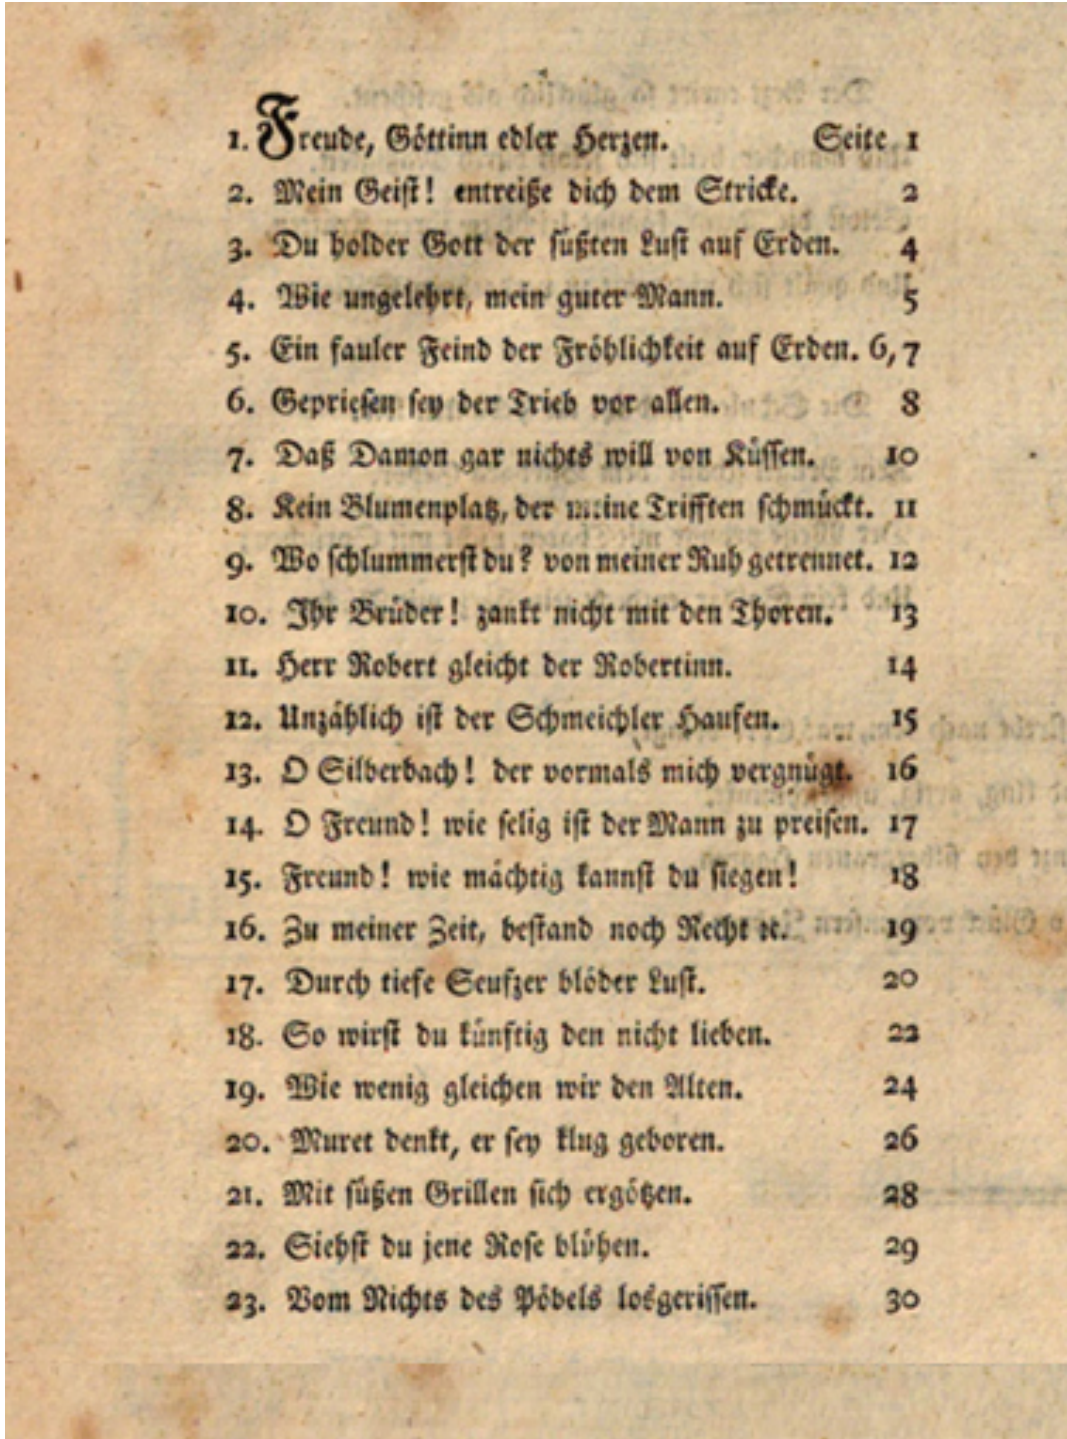 1. Freude, Göttinn edler Herzen. Seite 1
2. Mein Geist! entreiße dich dem Stricke. 2
3. Du holder Gott der süßten Lust auf Erden. 4
4. Wie ungelehrt, mein guter Mann. 5
5. Ein fauler Feind der Fröhlichkeit auf Erden. 6, 7
6. Gepriesen sey der Trieb vor allen. 8
7. Daß Damon gar nichts will von Küssen. 10
8. Kein Blumenplatz, der meine Trifften schmückt. 11
9. Wo schlummerst du? von meiner Ruh getrennet. 12
10. Ihr Brüder! zankt nicht mit den Thoren. 13
11. Herr Robert gleicht der Robertinn. 14
12. Unzählich ist der Schmeichler Haufen. 15
13. O Silberbach! der vormals mich vergnügt. 16
14. O Freund! wie selig ist der Mann zu preisen. 17
15. Freund! wie mächtig kannst du siegen! 18
16. Zu meiner Zeit, bestand noch Recht ꝛc. 19
17. Durch tiefe Seufzer blöder Lust. 20
18. So wirst du künftig den nicht lieben. 22
19. Wie wenig gleichen wir den Alten. 24
20. Muret denkt, er sey klug geboren. 26
21. Mit süßen Grillen sich ergötzen. 28
22. Siehst du jene Rose blühen. 29
23. Vom Nichts des Pöbels losgerissen. 30